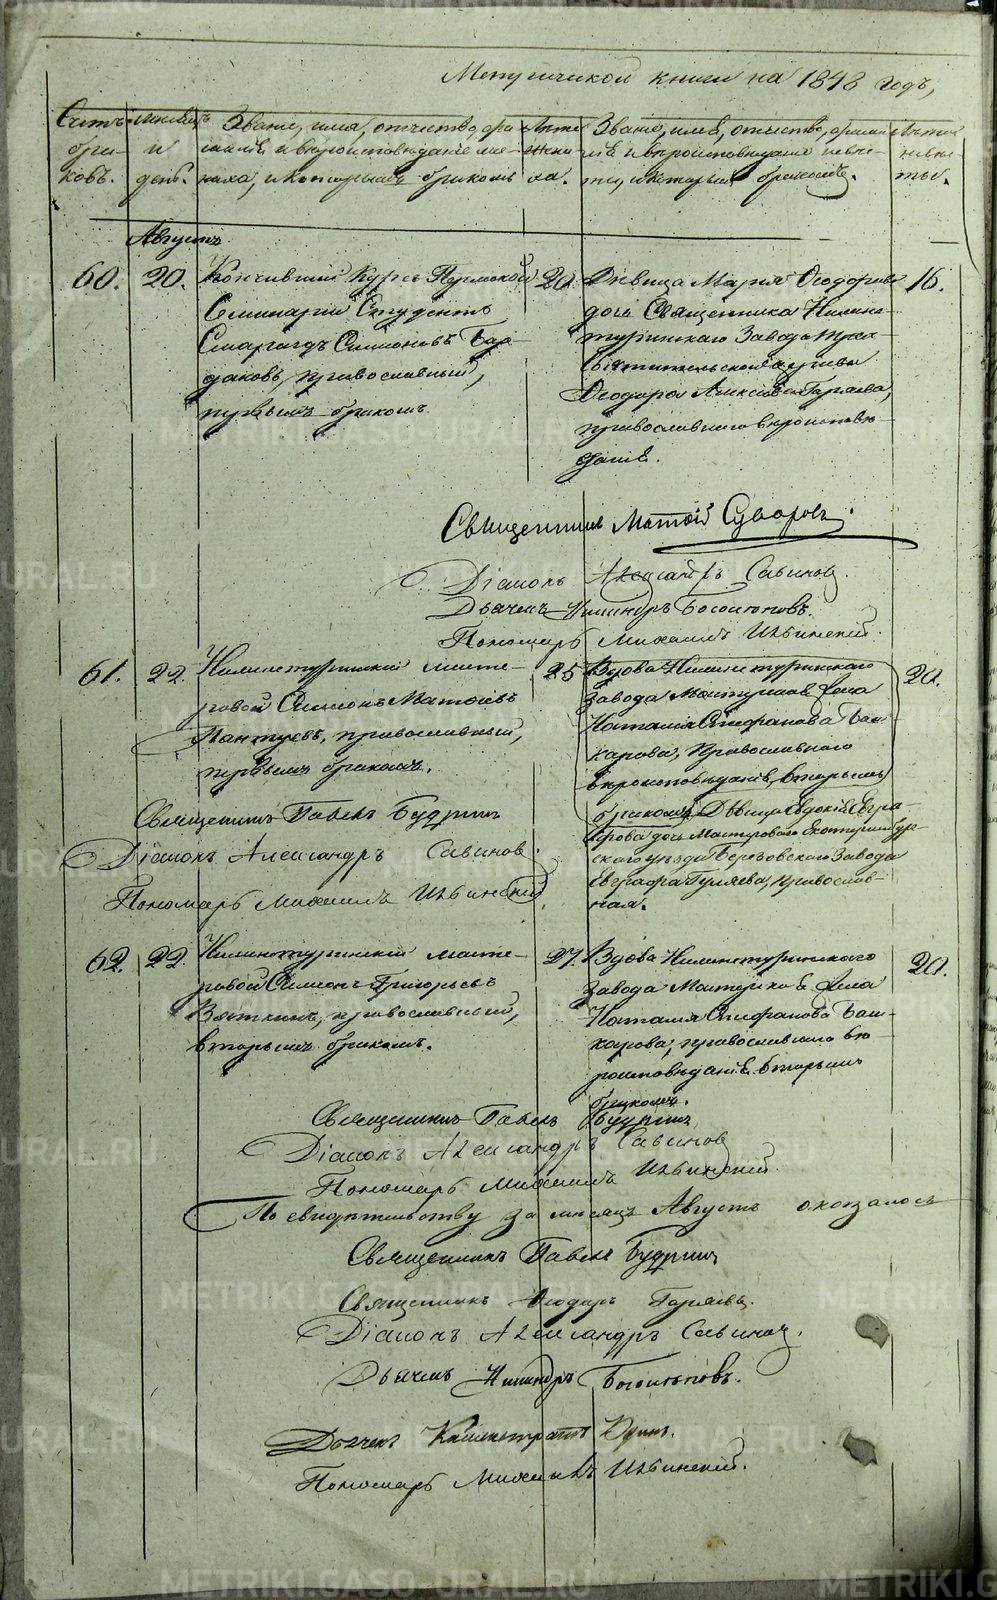 METRIKI.GASO-URAL.RU
Метрической книги на 1848 годъ,
Счетъ бра-ковъ.
месяцъ и день.
Званіе, имя, отчество, фа-
миліе и вѣроисповѣданіе же-
ниха, и которымъ бракомъ
Лѣта жени-ха.
Званіе, имя, отчество, фами-
ліе и вѣроисповѣданіе невѣс-
ты, и которымъ бракомъ.
Лѣта невѣс-ты.
Августъ
60. 20. Кончившій курсъ Пермской
Семинаріи Студентъ
Смарагдъ Симеоновъ Бар-
даковъ, православный,
первымъ бракомъ
Дѣвица Марія Ѳеодорова
дочь Священника Нижне-
туринскаго Завода
Ѳеодора Алексѣева Гаряева,
православнаго вѣроисповѣ-
данія.
16.
Священникъ Матѳій Суворовъ.
Діаконъ Александръ Савиновъ.
Дьячекъ Никандръ Богоявленовъ.
Пономарь Михаилъ Ильинскій.
61. 22. Нижнетуринскій масте-
ровой Симеонъ Матѳіевъ
Пантуевъ, православный,
первымъ бракомъ.
25
Вдова Нижнетуринскаго
Завода Мастерская жена
Наталія Стефанова Баш-
карова, Православнаго
вѣроисповѣданія, вторымъ
бракомъ. Дѣвица Евдокія Евгра-
фова дочь Мастероваго Екатеринбур-
скаго уѣзда Березовскаго Завода
Евграфа Гуляева, православ-
ная.
20.
Священникъ Павелъ Будринъ
Діаконъ Александръ Савиновъ.
Пономарь Михаилъ Ильинскій.
62. 22. Нижнетуринскій масте-
ровой Симеонъ Григорьевъ
Вяткинъ, православный,
вторымъ бракомъ.
27.
Вдова Нижнетуринскаго
Завода Мастерская жена
Наталія Стефанова Баш-
карова, православнаго вѣ-
роисповѣданія вторымъ
бракомъ.
20.
Священникъ Павелъ Будринъ
Діаконъ Александръ Савиновъ
Пономарь Михаилъ Ильинскій.
По свидѣтельству за месяцъ Августъ оказалось
Священникъ Павелъ Будринъ
Священникъ Ѳеодоръ Гаряевъ.
Діаконъ Александръ Савиновъ.
Дьячекъ Никандръ
Дьячекъ
Пономарь Михаилъ Ильинскій.
METRIKI.GASO-URAL.RU